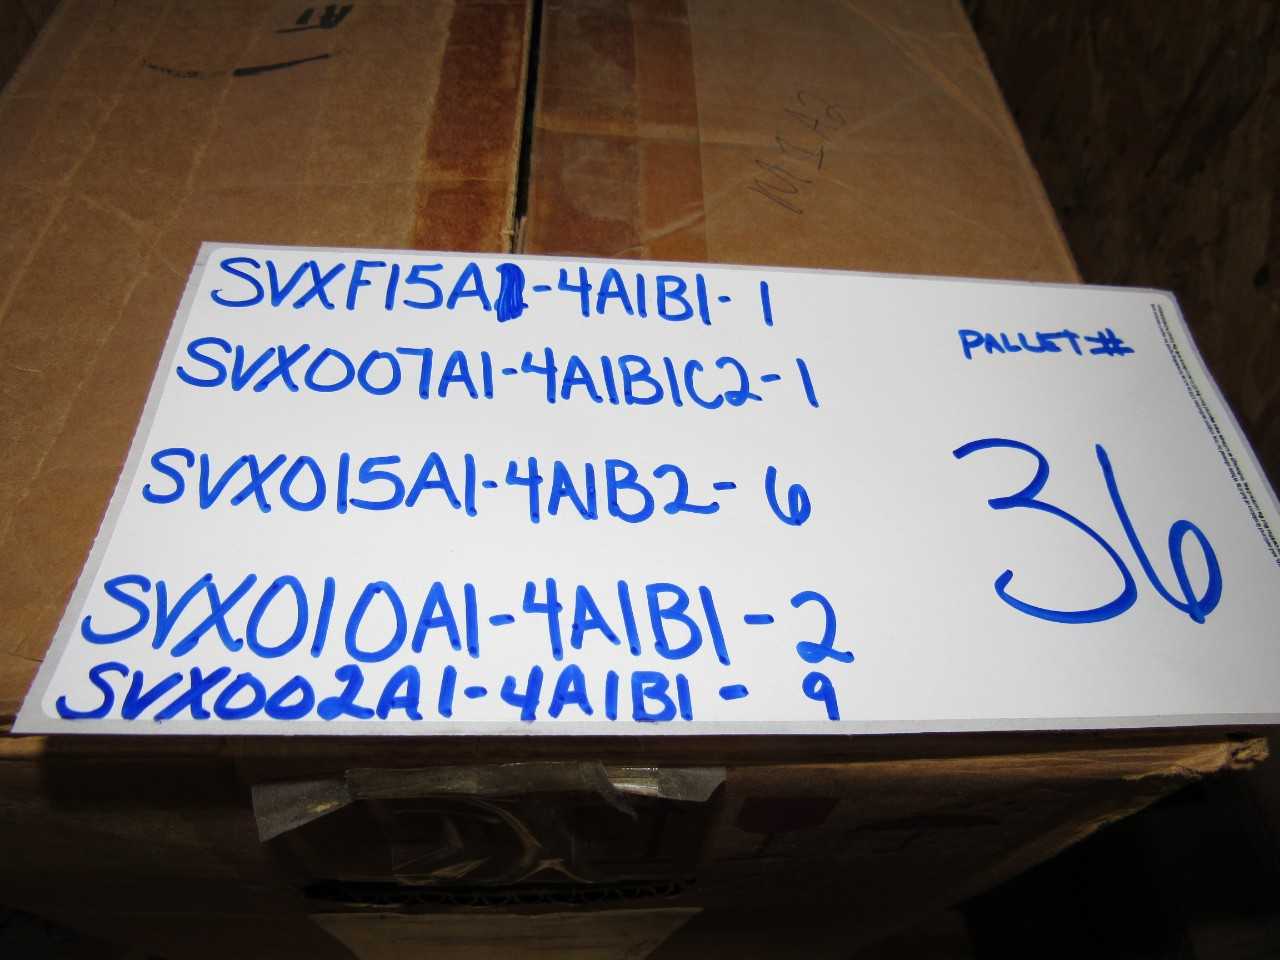 SVXF15A1-4A1B1-1
SVX007A1-4A1B1C2-1
SVX015A1-4A1B2-6
SVX010A1-4A1B1-2
SVX002A1-4A1B1-9
PALLET #
36